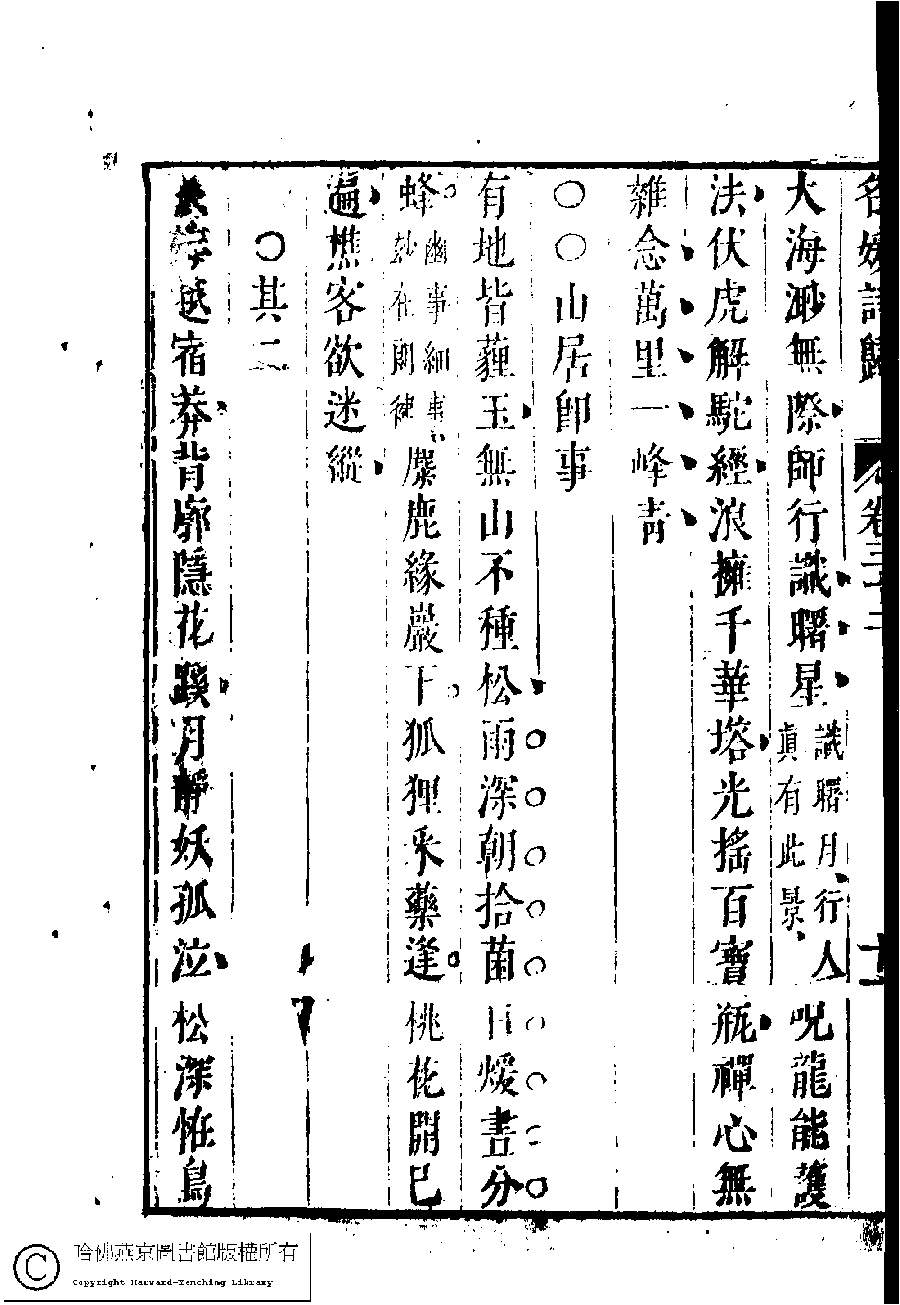 名媛詩歸 卷三十二 十一
大海渺無際師行識曙星識曙月行人真有此景呪龍能護
法伏虎解駝經浪擁千華塔光搖百寶瓶禪心無
雜念萬里一峰青
〇〇山居即事
有地皆薶玉無山不種松雨深朝拾菌日煖晝分
蜂幽事細事妙在閒徤麋鹿緣巖下狐狸采藥逢桃花開已
遍樵客欲迷縱
〇其二
宿莽背廓隱花蹊月靜妖孤泣松深怪鳥
哈佛燕京圖書館版權所有
Copyright Harvard-Yenching Library